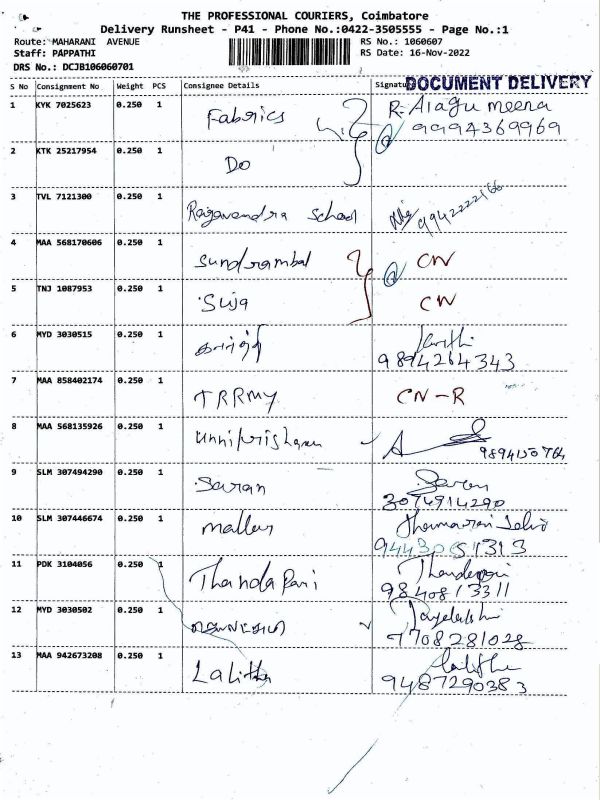 THE PROFESSIONAL COURIERS, Coimbatore
Delivery Runsheet - P41 - Phone No.:0422-3505555 - Page No.:1
Route: MAHARANI AVENUE
RS No.: 1060607
Staff: PAPPATHI
RS Date: 16-Nov-2022
DRS No.: DCJB106060701
DOCUMENT DELIVERY
S No Consignment No Weight PCS Consignee Details Signature
1 KYK 7025623 0.250 1 Fabrics R. Alagu meena
9994369969
2 KTK 25217954 0.250 1 Do
3 TVL 7121300 0.250 1 Ragavendra School 9942222166
4 MAA 568170606 0.250 1 Sundrambal CN
5 TNJ 1087953 0.250 1 Suja CN
6 MYD 3030515 0.250 1 கார்த்தி
9894264343
7 MAA 858402174 0.250 1 TRRMY CN-R
8 MAA 568135926 0.250 1 unnikrishnan
9 SLM 307494290 0.250 1 Saran Saran
3074914290
10 SLM 307446674 0.250 1
9443051313
11 PDK 3104056 0.250 1 ThandaPani
9840813311
12 MYD 3030502 0.250 1
7708281028
13 MAA 942673208 0.250 1 Lalitha Lalitha
9487290383